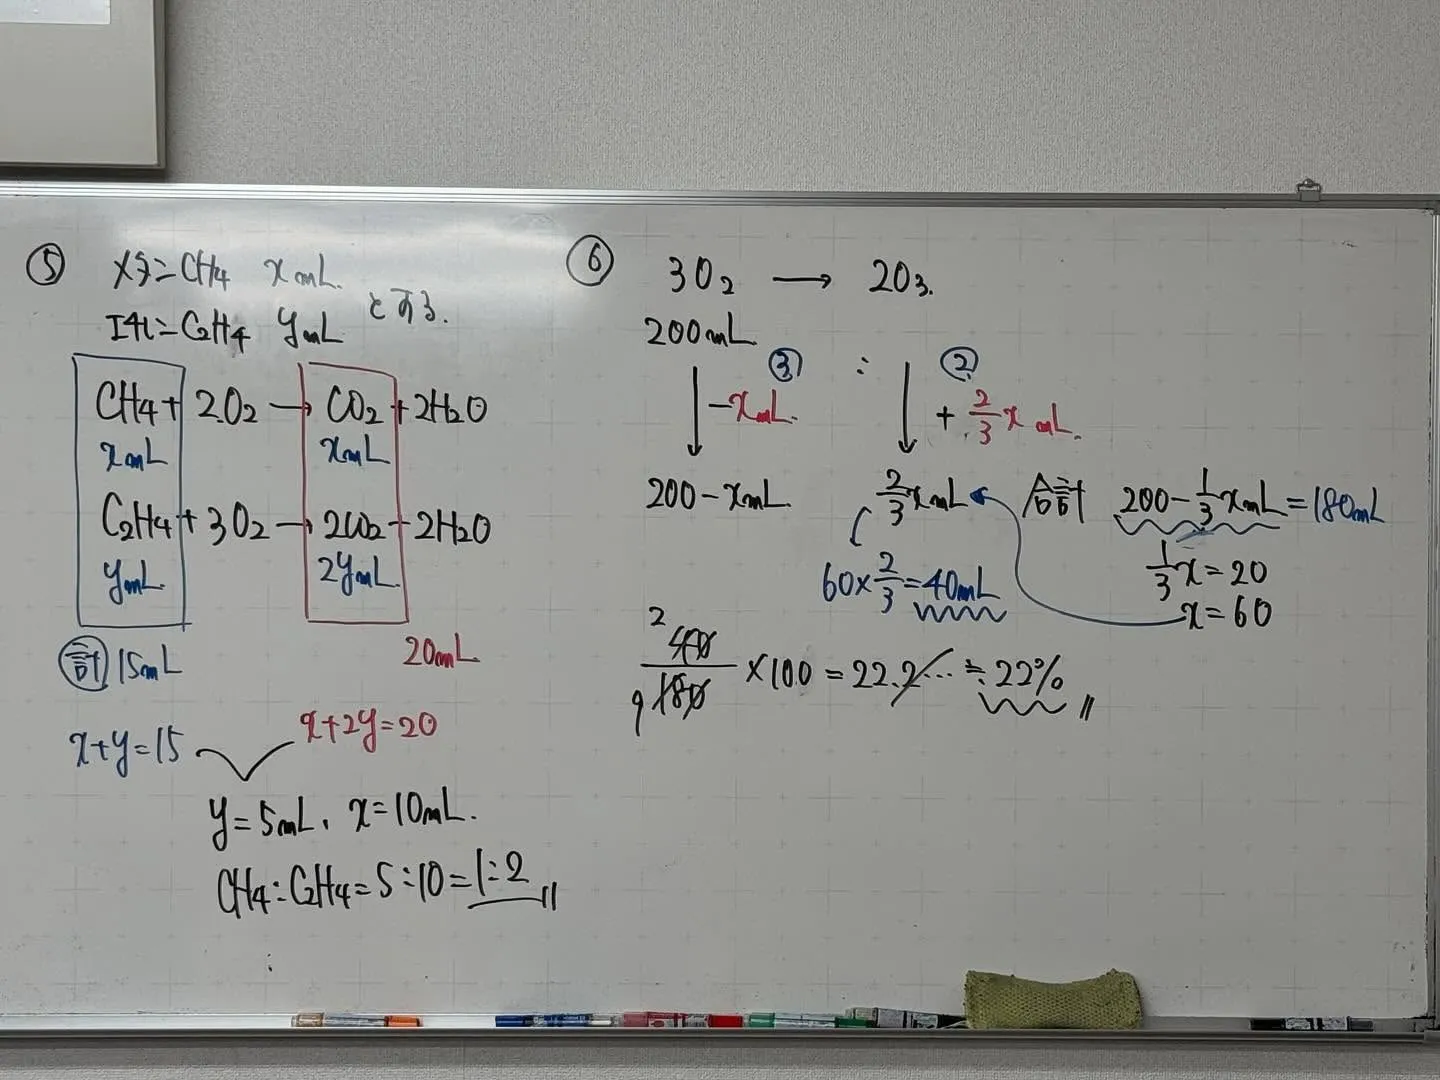 ⑤ メタン CH4 xmL
エチレン C2H4 ymL とする.
CH4 + 2O2 → CO2 + 2H2O
xmL xmL
C2H4 + 3O2 → 2CO2 + 2H2O
ymL 2ymL
計 15mL 20mL
x+y=15 x+2y=20
y=5mL, x=10mL.
CH4:C2H4=5:10=1:2
⑥ 3O2 → 2O3.
200mL
③ : ②
-xmL. + 2/3 x mL.
200-xmL 2/3 xmL 合計 200-1/3 xmL=180mL
1/3 x=20
60×2/3=40mL x=60
2
40/180 ×100=22.2… ≒22%
9